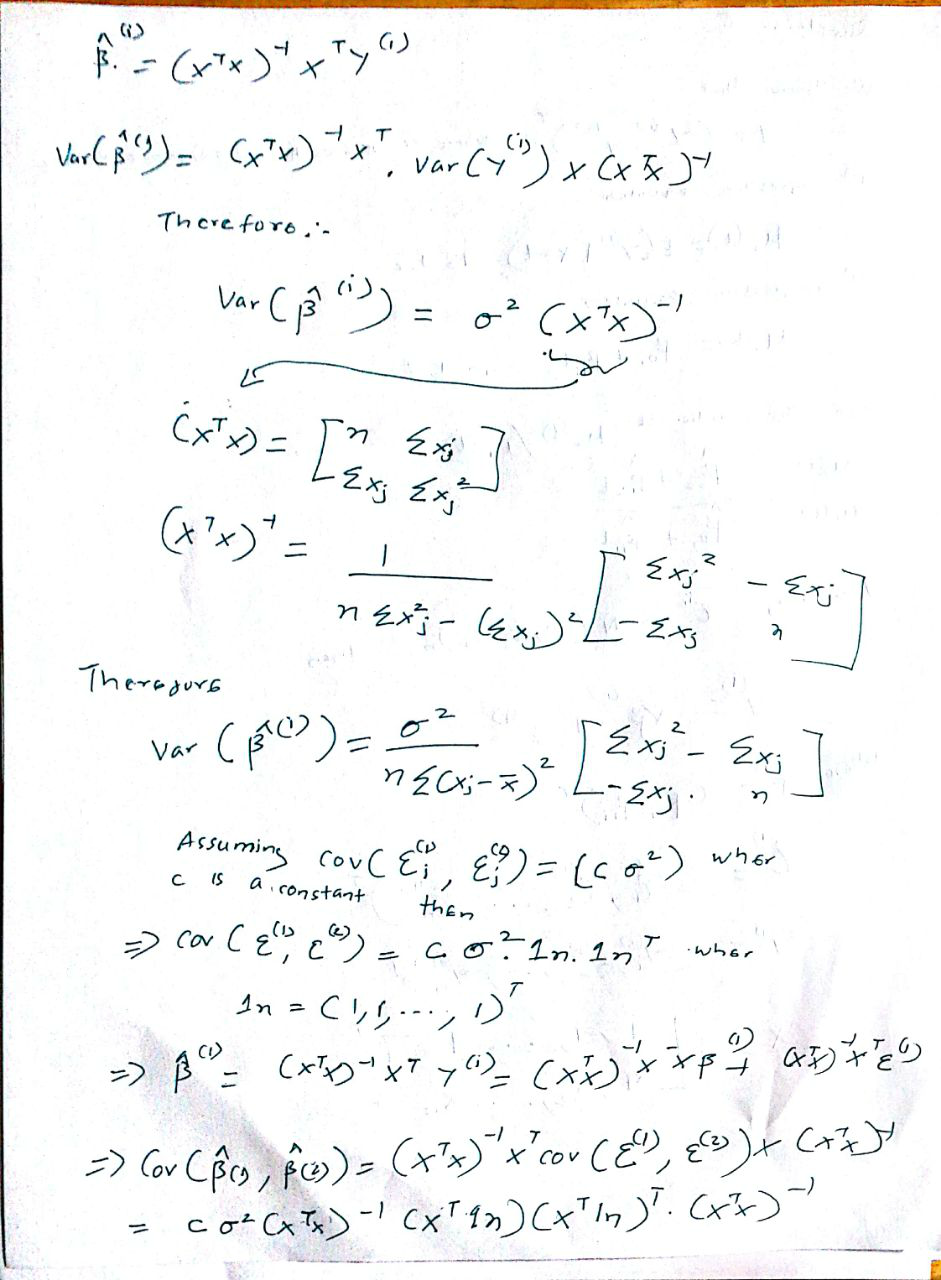 β̂^(i) = (x^T x)^-1 x^T y^(i)
Var(β̂^(i)) = (x^T x)^-1 x^T . var(y^(i)) x (x^T x)^-1
Therefore :-
Var(β̂^(i)) = σ^2 (x^T x)^-1
(x^T x) = [n Σxj
Σxj Σxj^2]
(x^T x)^-1 = 1 / (nΣxj^2 - (Σxj)^2) [Σxj^2 - Σxj
- Σxj n]
Therefore
var (β̂^(i)) = σ^2 / (nΣ(xj - x̄)^2) [Σxj^2 - Σxj
-Σxj . n]
Assuming cov(εj^(1), εj^(2)) = (c σ^2) wher
c is a constant then
⇒ cov (ε^(1), ε^(2)) = c σ^2 . 1n . 1n^T wher
1n = (1, 1, ..., 1)^T
⇒ β̂^(i) = (x^T x)^-1 x^T y^(i) = (x^T x)^-1 x^T x β^(i) + (x^T x)^-1 x^T ε^(i)
⇒ Cov (β̂(1), β̂(2)) = (x^T x)^-1 x^T cov (ε^(1), ε^(2)) x (x^T x)^-1
= c σ^2 (x^T x)^-1 (x^T 1n) (x^T 1n)^T . (x^T x)^-1